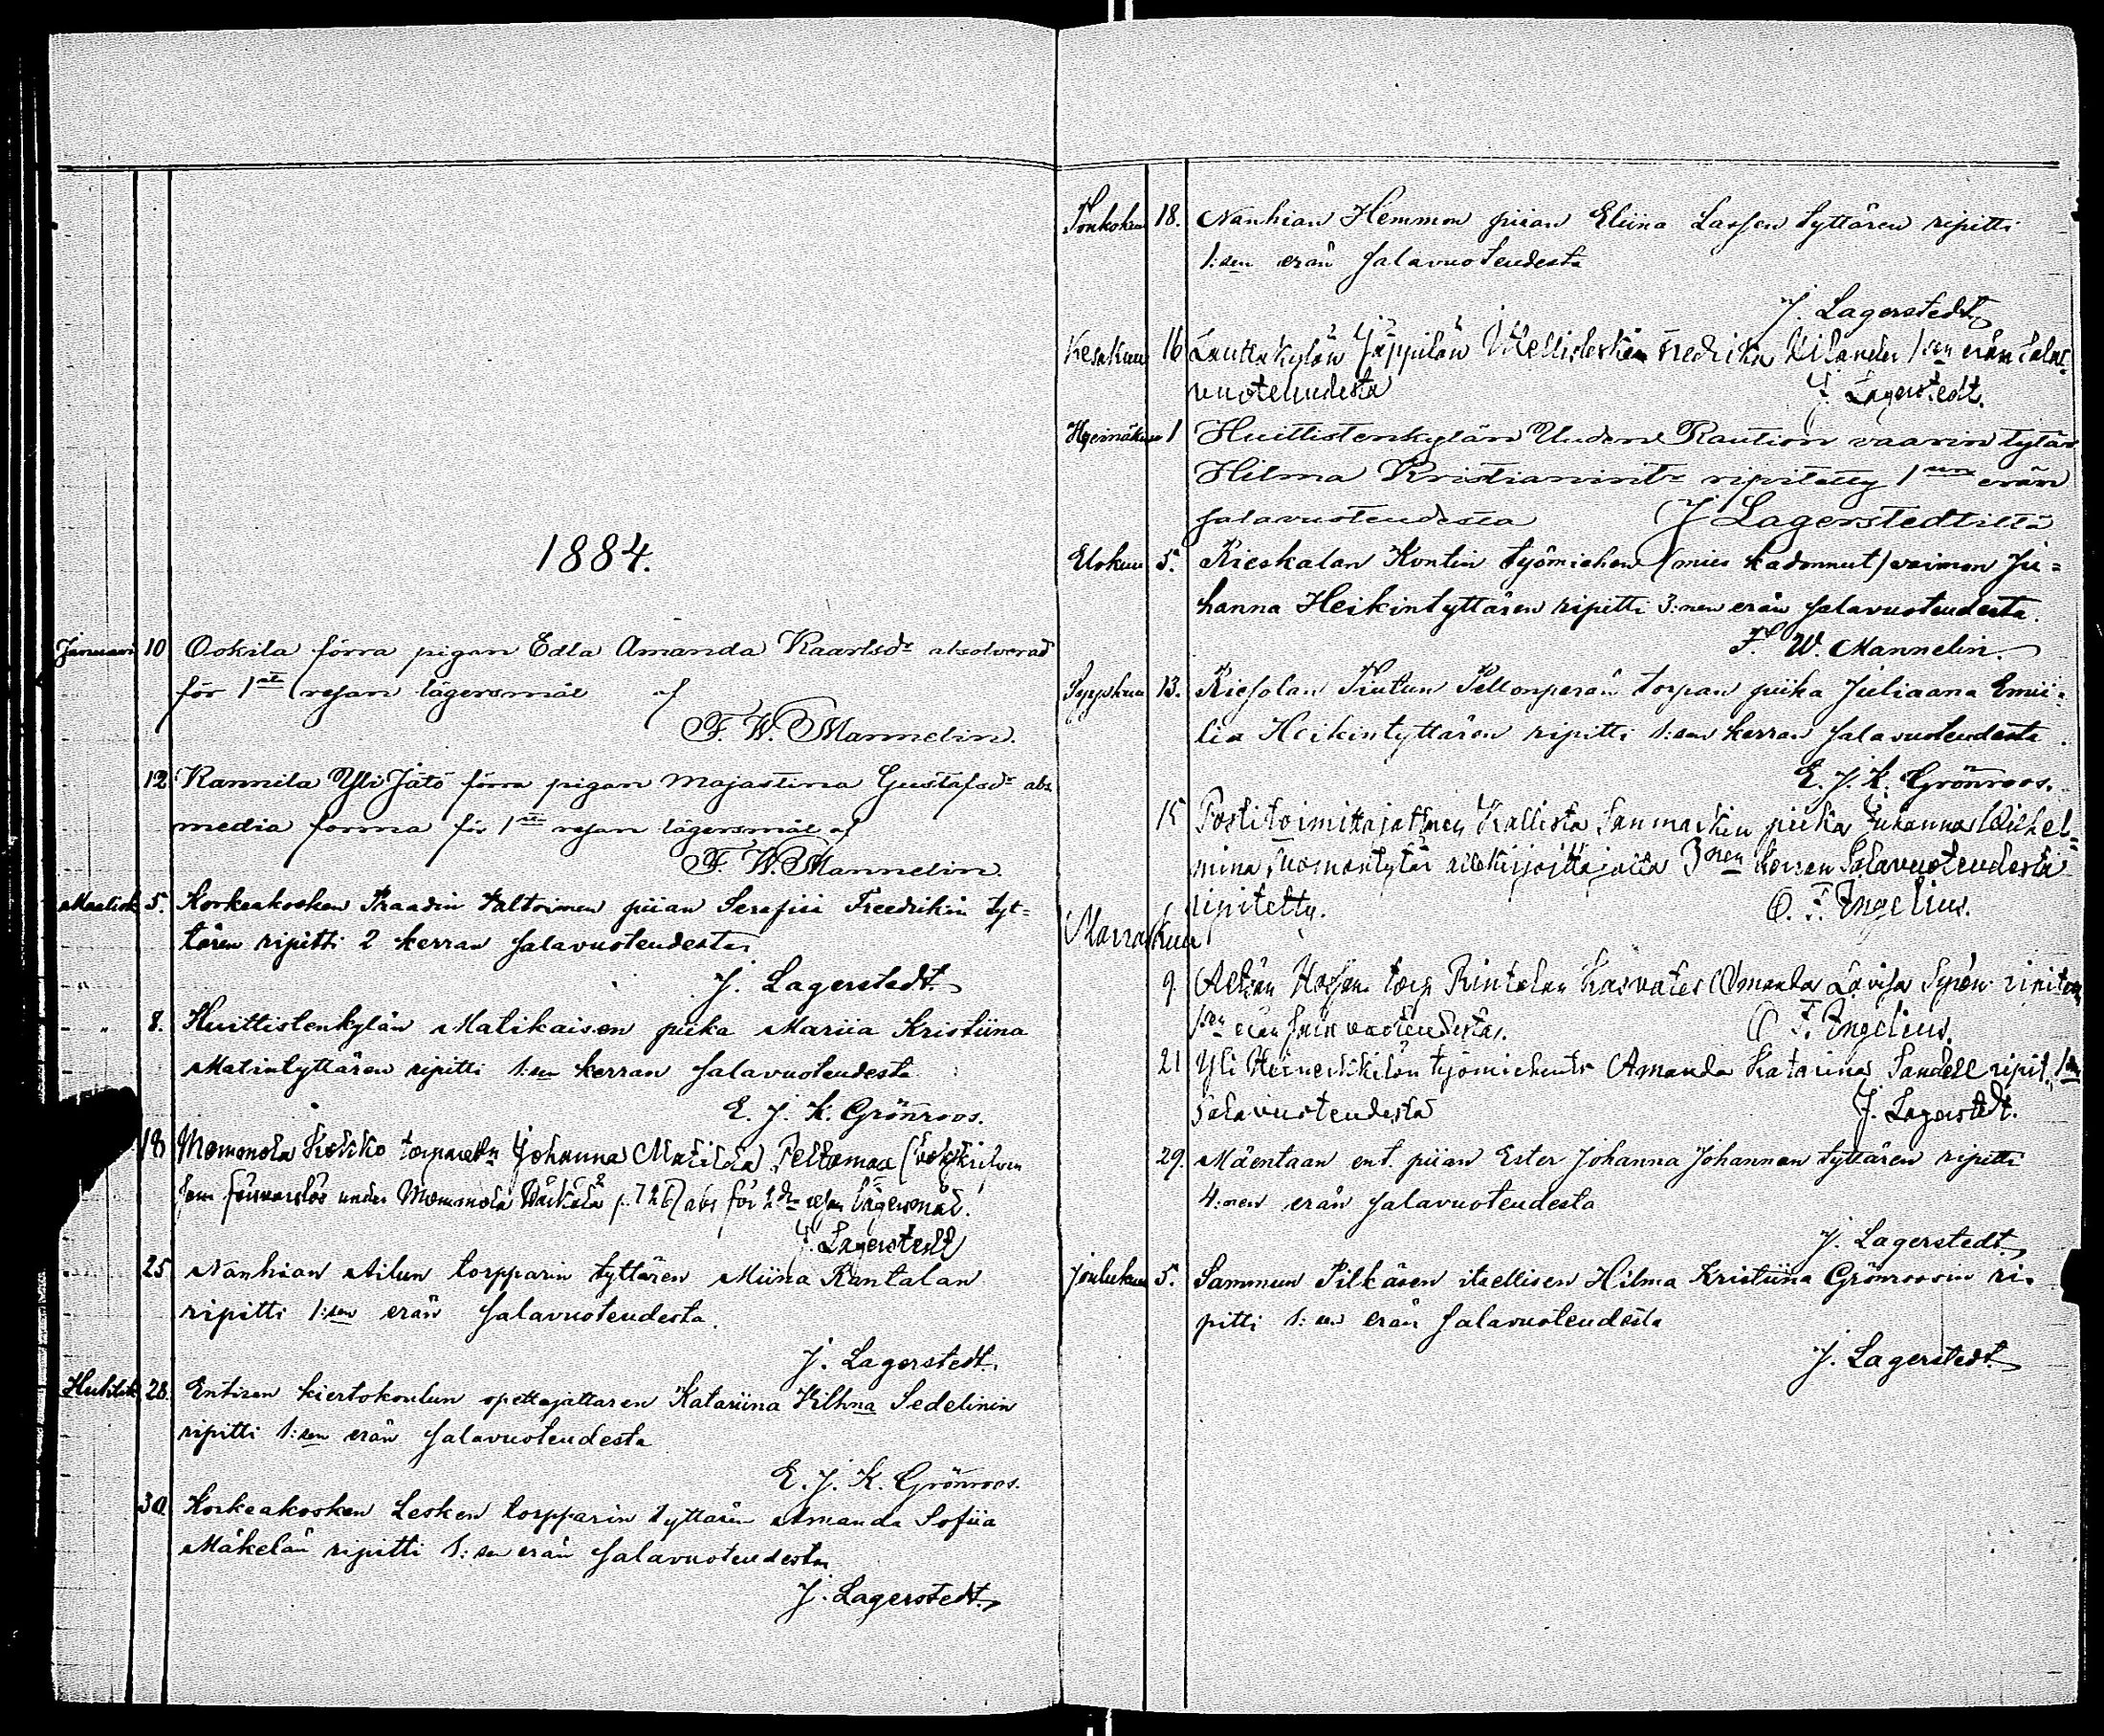 1884.
Januari 10 Ookila förra pigan Edla Amanda Kaarlsdr absolverad
för 1sta resan lägersmål af
F. W. Mannelin.
12 Rannila Yli Jätö förra pigan Majastina Gustafsdr abs.
media forma för 1sta resan lägersmål af
F. W. Mannelin.
Maalisk 5. Korkeakosken Kraadin piian Serafiia Freedrikin tyt-
tären ripitti 2 kerran salavuoteudesta
J. Lagerstedt.
" " 8. Huittistenkylän Matikaisen piika Mariia Kristiina
Matintyttären ripitti 1:sen kerran salavuoteudesta
E. J. K. Grönroos.
18 Mommola Johanna Matilda Peltomaa
under Mommola p. 726) abs för 2dra resan lägersmål.
J. Lagerstedt
25 Nanhian Ailun torpparin tyttären Miina Rantalan
ripitti 1:sen erän salavuoteudesta.
J. Lagerstedt.
Huhtik 28. Entisen kiertokoulun opettajattaren Katariina Vilhna Sedelinin
ripitti 1:sen erän salavuoteudesta
E. J. K. Grönroos.
30. Korkeakosken Lesken torpparin tyttären Amanda Sofiia
Mäkelän ripitti 1:sen erän salavuoteudesta
J. Lagerstedt.
Toukokuu 18. Nanhian Hemmon piian Eliina Lassen tyttären ripitti
1:sen erän salavuoteudesta
J. Lagerstedt
Kesäkuu 16 Lauttakylän Jäppilän Itellisleskien Fredrika Kilander 1sen erän salac
vuoteuudesta J. Lagerstedt.
Heinäkuu 1 Huittistenkylän Uuden Raution vaarin tytär
Hilma Kristianint: ripitetty 1sen erän
salavuoteudesta J Lagerstedtiltä
Elokuu 5. Rieskalan Kontin työmiehen (mies kadonnut) vaimon Ju-
hanna Heikintyttären ripitti 3:nen erän salavuoteudesta.
F. W. Mannelin.
Syyskuu 13. Riesolan Kutun Pellonperän torpan piika Juliaana Emii-
lia Heikintyttären ripitti 1:sen kerran salavuoteudesta.
E. J. K. Grönroos.
15 Postitoimittajattaren piika Juhanna Wilhel-
mina Tuomontytär allekirjoittajalta 3nen kerran Salavuoteudesta
ripitetty. O. F. Engelius.
Marraskuu
9. Rintalan kasvates Amanda Lovisa
1sen erän salavuoteudesta. O. F. Engelius.
21 Yli työmiehent: Amanda Katarina Sandell ripit. 1sen
salavuoteudesta J. Lagerstedt.
29. Mäentaan ent. piian Ester Johanna Johannan tyttären ripitti
4:nen erän salavuoteudesta
J. Lagerstedt.
Joulukuu 5. Sammun Pilkäsen itsellisen Hilma Kristiina Grönroosin ri-
pitti 1:sen erän salavuoteudesta
J. Lagerstedt